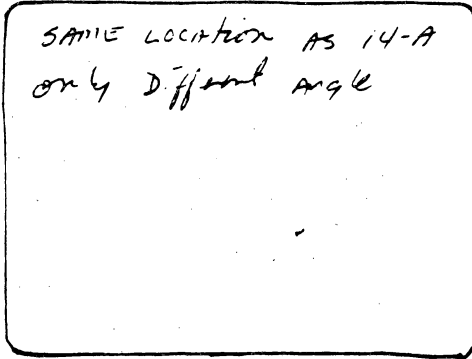 SAME LOCATION AS 14-A
only Different Angle